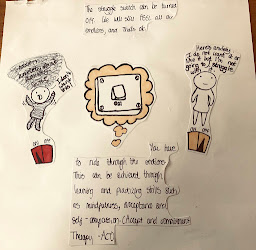 The struggle switch can be turned
OFF. We will still FEEL all our
emotions, and that's ok!
Here's anxiety.
I do not want it or
like it but I'm not
going to struggle
I don't
want this!
ON OFF
ON OFF
You have
to ride through the emotions
This can be achieved through
learning and practicing skills such
as mindfulness, acceptance and
self-compassion (Accept and commitment
Therapy - ACT)